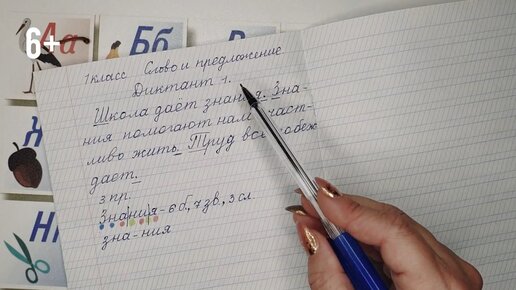 6+
Аа Бб В
1 класс Слово и предложение
Диктант 1.
Школа даёт знания. Зна-
ния помогают нам счаст-
ливо жить. Труд всё побеж
дает.
3 пр.
Знания - 6 б, 7 зв, 3 сл.
зна-ния